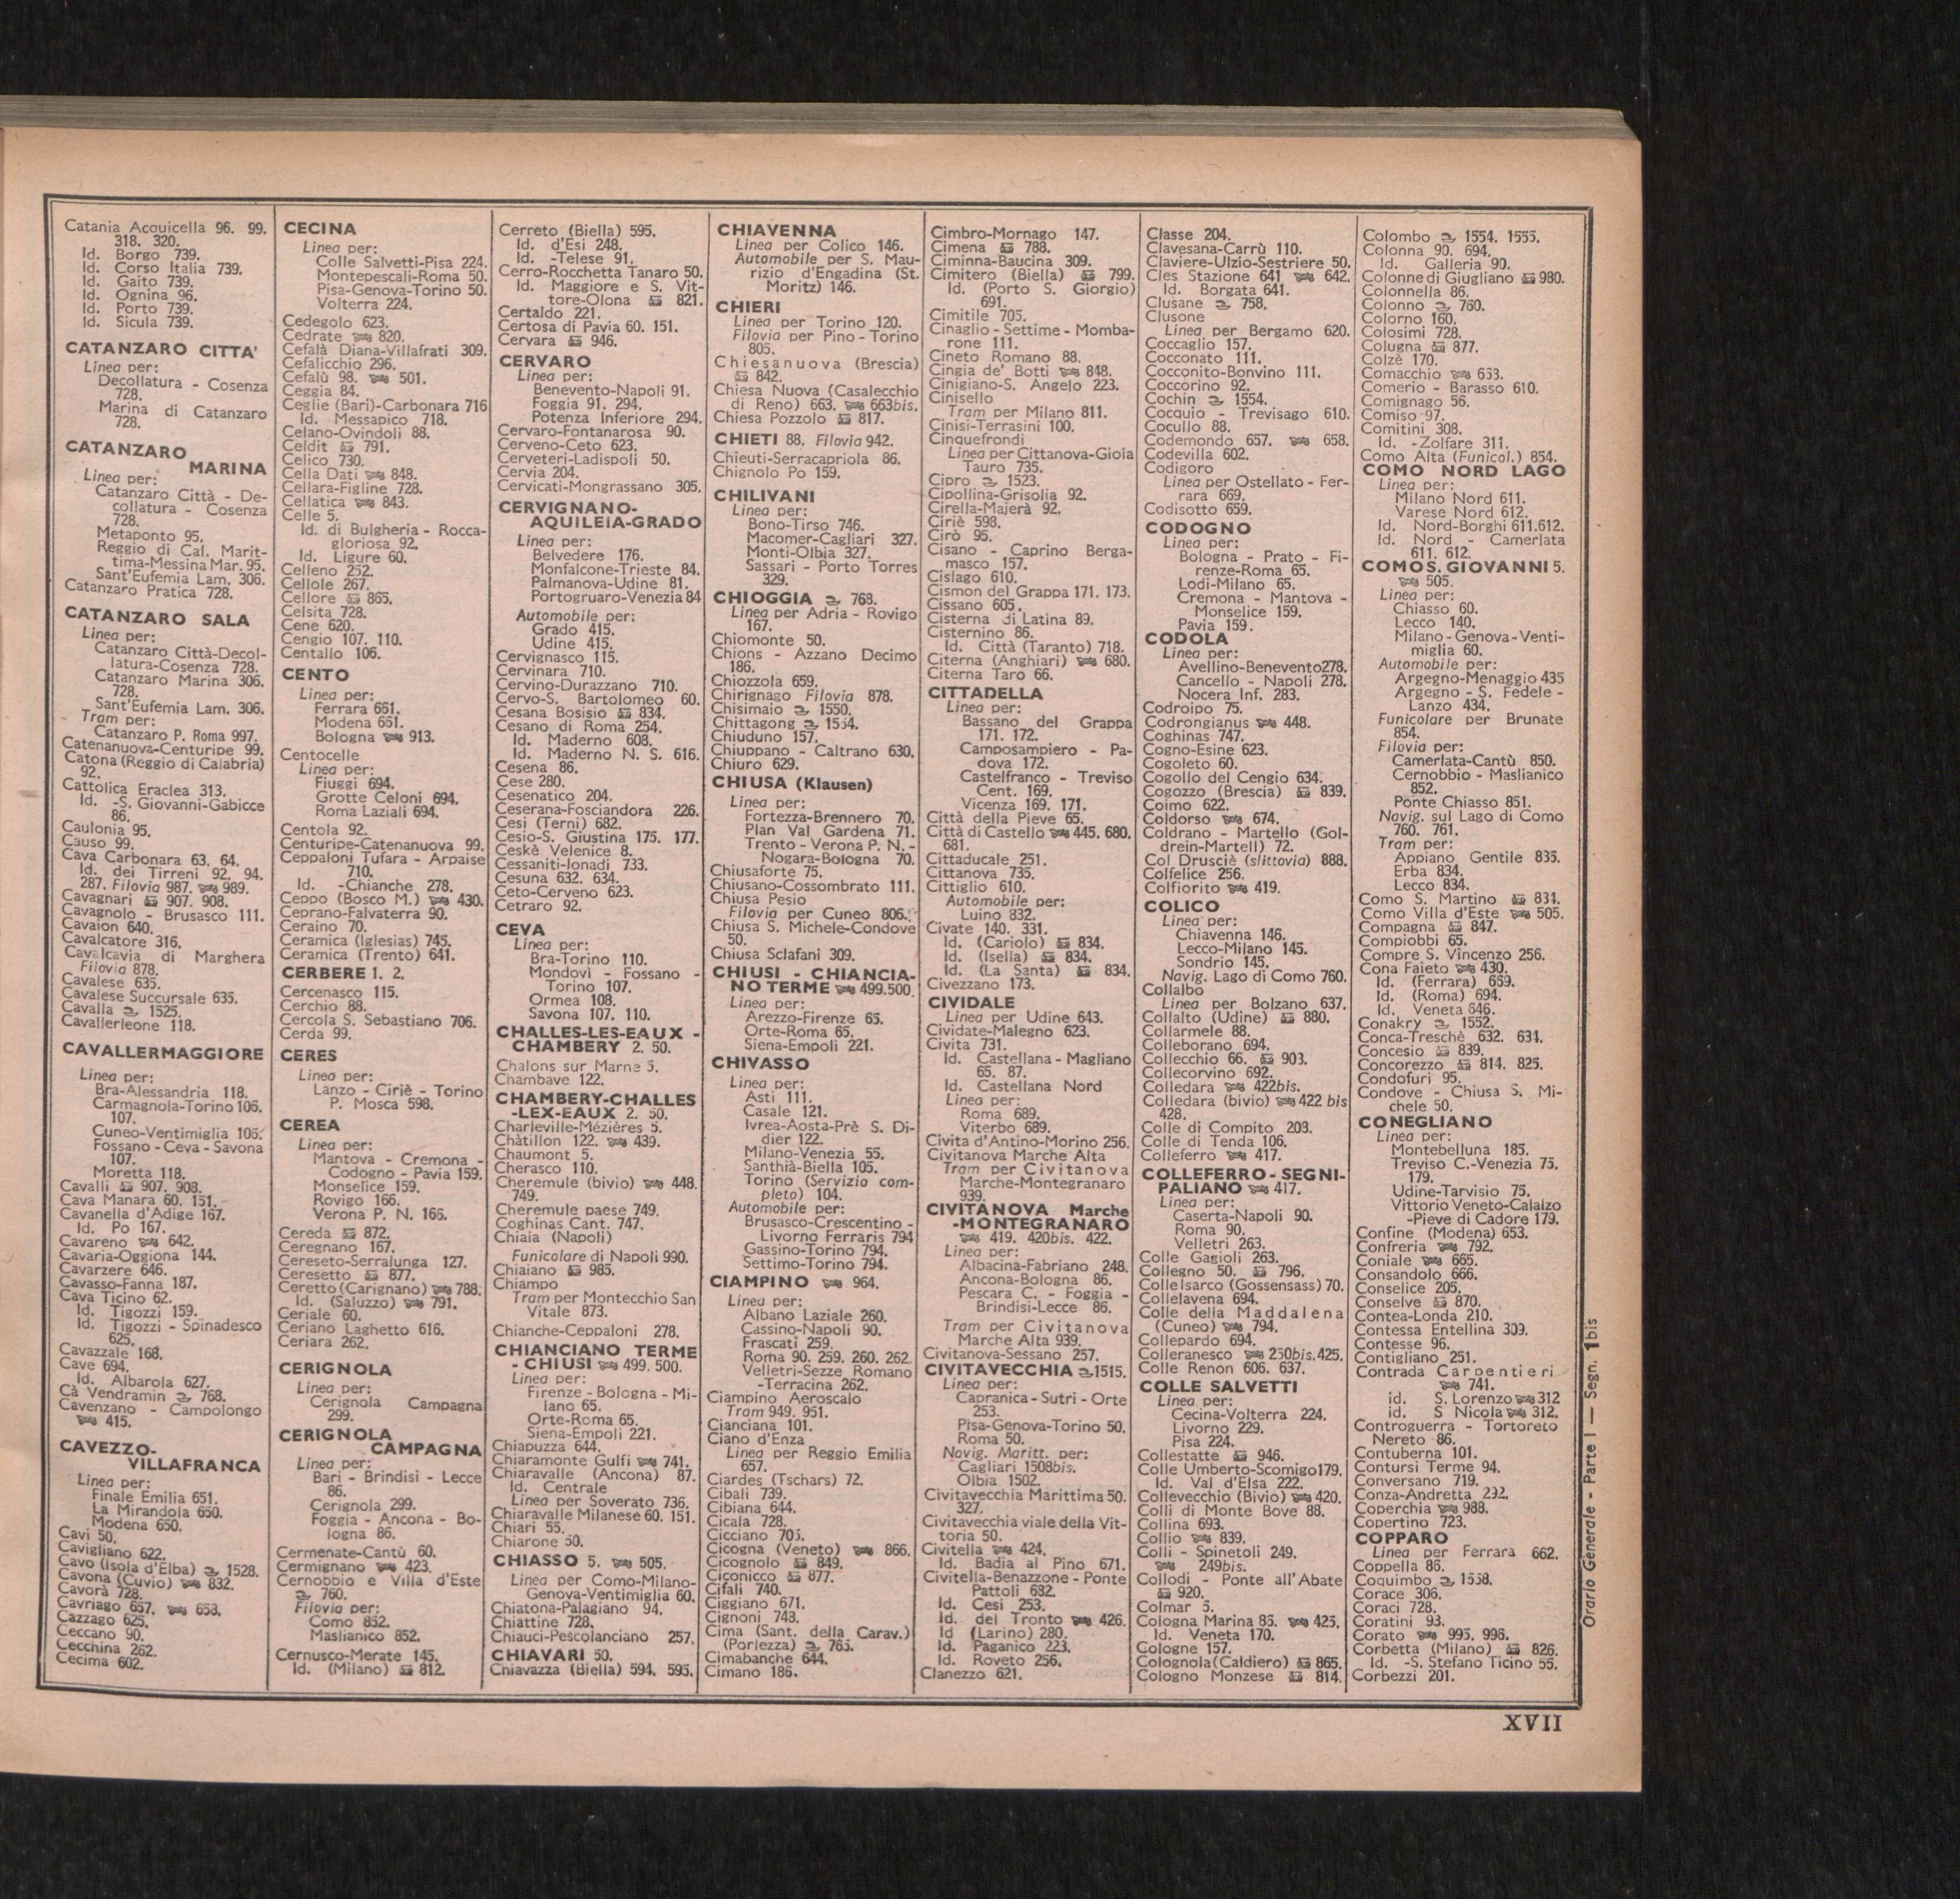 Catania Acquicella 96. 99.
318. 320.
Id. Borgo 739.
Id. Corso Italia 739.
Id. Gaito 739.
Id. Ognina 96.
Id. Porto 739.
Id. Sicula 739.
CATANZARO CITTA'
Linea per:
Decollatura - Cosenza
728.
Marina di Catanzaro
728.
CATANZARO
MARINA
Linea per:
Catanzaro Città - De-
collatura - Cosenza
728.
Metaponto 95.
Reggio di Cal. Marit-
tima-Messina Mar. 95.
Sant'Eufemia Lam. 306.
Catanzaro Pratica 728.
CATANZARO SALA
Linea per:
Catanzaro Città-Decol-
latura-Cosenza 728.
Catanzaro Marina 306.
728.
Sant'Eufemia Lam. 306.
Tram per:
Catanzaro P. Roma 997.
Catenanuova-Centuripe 99.
Catona (Reggio di Calabria)
92.
Cattolica Eraclea 313.
Id. -S. Giovanni-Gabicce
86.
Caulonia 95.
Causo 99.
Cava Carbonara 63. 64.
Id. dei Tirreni 92. 94.
287. Filovia 987. 989.
Cavagnari 907. 908.
Cavagnolo - Brusasco 111.
Cavaion 640.
Cavalcatore 316.
Cavalcavia di Marghera
Filovia 878.
Cavalese 635.
Cavalese Succursale 635.
Cavalla 1525.
Cavallerleone 118.
CAVALLERMAGGIORE
Linea per:
Bra-Alessandria 118.
Carmagnola-Torino 106.
107.
Cuneo-Ventimiglia 106.
Fossano - Ceva - Savona
107.
Moretta 118.
Cavalli 907. 908.
Cava Manara 60. 151.
Cavanella d'Adige 167.
Id. Po 167.
Cavareno 642.
Cavaria-Oggiona 144.
Cavarzere 646.
Cavasso-Fanna 187.
Cava Ticino 62.
Id. Tigozzi 159.
Id. Tigozzi - Spinadesco
625.
Cavazzale 168.
Cave 694.
Id. Albarola 627.
Cà Vendramin 768.
Cavenzano - Campolongo
415.
CAVEZZO-
VILLAFRANCA
Linea per:
Finale Emilia 651.
La Mirandola 650.
Modena 650.
Cavi 50.
Cavigliano 622.
Cavo (Isola d'Elba) 1528.
Cavona (Cuvio) 832.
Cavorà 728.
Cavriago 657. 658.
Cazzago 625.
Ceccano 90.
Cecchina 262.
Cecima 602.
CECINA
Linea per:
Colle Salvetti-Pisa 224.
Montepescali-Roma 50.
Pisa-Genova-Torino 50.
Volterra 224.
Cedegolo 623.
Cedrate 820.
Cefalà Diana-Villafrati 309.
Cefalicchio 296.
Cefalù 98. 501.
Ceggia 84.
Ceglie (Bari)-Carbonara 716
Id. Messapico 718.
Celano-Ovindoli 88.
Celdit 791.
Celico 730.
Cella Dati 848.
Cellara-Figline 728.
Cellatica 843.
Celle 5.
Id. di Bulgheria - Rocca-
gloriosa 92.
Id. Ligure 60.
Celleno 252.
Cellole 267.
Cellore 865.
Celsita 728.
Cene 620.
Cengio 107. 110.
Centallo 106.
CENTO
Linea per:
Ferrara 661.
Modena 661.
Bologna 913.
Centocelle
Linea per:
Fiuggi 694.
Grotte Celoni 694.
Roma Laziali 694.
Centola 92.
Centuripe-Catenanuova 99.
Ceppaloni Tufara - Arpaise
710.
Id. -Chianche 278.
Ceppo (Bosco M.) 430.
Ceprano-Falvaterra 90.
Ceraino 70.
Ceramica (Iglesias) 745.
Ceramica (Trento) 641.
CERBERE 1. 2.
Cercenasco 115.
Cerchio 88.
Cercola S. Sebastiano 706.
Cerda 99.
CERES
Linea per:
Lanzo - Ciriè - Torino
P. Mosca 598.
CEREA
Linea per:
Mantova - Cremona -
Codogno - Pavia 159.
Monselice 159.
Rovigo 166.
Verona P. N. 166.
Cereda 872.
Ceregnano 167.
Cereseto-Serralunga 127.
Ceresetto 877.
Ceretto (Carignano) 788.
Id. (Saluzzo) 791.
Ceriale 60.
Ceriano Laghetto 616.
Ceriara 262.
CERIGNOLA
Linea per:
Cerignola Campagna
299.
CERIGNOLA
CAMPAGNA
Linea per:
Bari - Brindisi - Lecce
86.
Cerignola 299.
Foggia - Ancona - Bo-
logna 86.
Cermenate-Cantù 60.
Cermignano 423.
Cernobbio e Villa d'Este
760.
Filovia per:
Como 852.
Maslianico 852.
Cernusco-Merate 145.
Id. (Milano) 812.
Cerreto (Biella) 595.
Id. d'Esi 248.
Id. -Telese 91.
Cerro-Rocchetta Tanaro 50.
Id. Maggiore e S. Vit-
tore-Olona 821.
Certaldo 221.
Certosa di Pavia 60. 151.
Cervara 946.
CERVARO
Linea per:
Benevento-Napoli 91.
Foggia 91. 294.
Potenza Inferiore 294.
Cervaro-Fontanarosa 90.
Cerveno-Ceto 623.
Cerveteri-Ladispoli 50.
Cervia 204.
Cervicati-Mongrassano 305.
CERVIGNANO-
AQUILEIA-GRADO
Linea per:
Belvedere 176.
Monfalcone-Trieste 84.
Palmanova-Udine 81.
Portogruaro-Venezia 84
Automobile per:
Grado 415.
Udine 415.
Cervignasco 115.
Cervinara 710.
Cervino-Durazzano 710.
Cervo-S. Bartolomeo 60.
Cesana Bosisio 834.
Cesano di Roma 254.
Id. Maderno 608.
Id. Maderno N. S. 616.
Cesena 86.
Cese 280.
Cesenatico 204.
Ceserana-Fosciandora 226.
Cesi (Terni) 682.
Cesio-S. Giustina 175. 177.
Ceskè Velenice 8.
Cessaniti-Ionadi 733.
Cesuna 632. 634.
Ceto-Cerveno 623.
Cetraro 92.
CEVA
Linea per:
Bra-Torino 110.
Mondovì - Fossano -
Torino 107.
Ormea 108.
Savona 107. 110.
CHALLES-LES-EAUX -
CHAMBERY 2. 50.
Chalons sur Marne 5.
Chambave 122.
CHAMBERY-CHALLES
-LEX-EAUX 2. 50.
Charleville-Mézières 5.
Châtillon 122. 439.
Chaumont 5.
Cherasco 110.
Cheremule (bivio) 448.
749.
Cheremule paese 749.
Coghinas Cant. 747.
Chiaia (Napoli)
Funicolare di Napoli 990.
Chiaiano 985.
Chiampo
Tram per Montecchio San
Vitale 873.
Chianche-Ceppaloni 278.
CHIANCIANO TERME
- CHIUSI 499. 500.
Linea per:
Firenze - Bologna - Mi-
lano 65.
Orte-Roma 65.
Siena-Empoli 221.
Chiapuzza 644.
Chiaramonte Gulfi 741.
Chiaravalle (Ancona) 87.
Id. Centrale
Linea per Soverato 736.
Chiaravalle Milanese 60. 151.
Chiari 55.
Chiarone 50.
CHIASSO 5. 505.
Linea per Como-Milano-
Genova-Ventimiglia 60.
Chiatona-Palagiano 94.
Chiattine 728.
Chiauci-Pescolanciano 257.
CHIAVARI 50.
Chiavazza (Biella) 594. 595.
CHIAVENNA
Linea per Colico 146.
Automobile per S. Mau-
rizio d'Engadina (St.
Moritz) 146.
CHIERI
Linea per Torino 120.
Filovia per Pino - Torino
805.
Chiesanuova (Brescia)
842.
Chiesa Nuova (Casalecchio
di Reno) 663. 663bis.
Chiesa Pozzolo 817.
CHIETI 88. Filovia 942.
Chieuti-Serracapriola 86.
Chignolo Po 159.
CHILIVANI
Linea per:
Bono-Tirso 746.
Macomer-Cagliari 327.
Monti-Olbia 327.
Sassari - Porto Torres
329.
CHIOGGIA 768.
Linea per Adria - Rovigo
167.
Chiomonte 50.
Chions - Azzano Decimo
186.
Chiozzola 659.
Chirignago Filovia 878.
Chisimaio 1550.
Chittagong 1554.
Chiuduno 157.
Chiuppano - Caltrano 630.
Chiuro 629.
CHIUSA (Klausen)
Linea per:
Fortezza-Brennero 70.
Plan Val Gardena 71.
Trento - Verona P. N. -
Nogara-Bologna 70.
Chiusaforte 75.
Chiusano-Cossombrato 111.
Chiusa Pesio
Filovia per Cuneo 806.
Chiusa S. Michele-Condove
50.
Chiusa Sclafani 309.
CHIUSI - CHIANCIA-
NO TERME 499.500.
Linea per:
Arezzo-Firenze 65.
Orte-Roma 65.
Siena-Empoli 221.
CHIVASSO
Linea per:
Asti 111.
Casale 121.
Ivrea-Aosta-Prè S. Di-
dier 122.
Milano-Venezia 55.
Santhià-Biella 105.
Torino (Servizio com-
pleto) 104.
Automobile per:
Brusasco-Crescentino -
Livorno Ferraris 794
Gassino-Torino 794.
Settimo-Torino 794.
CIAMPINO 964.
Linea per:
Albano Laziale 260.
Cassino-Napoli 90.
Frascati 259.
Roma 90. 259. 260. 262.
Velletri-Sezze Romano
-Terracina 262.
Ciampino Aeroscalo
Tram 949. 951.
Cianciana 101.
Ciano d'Enza
Linea per Reggio Emilia
657.
Ciardes (Tschars) 72.
Cibali 739.
Cibiana 644.
Cicala 728.
Cicciano 705.
Cicogna (Veneto) 866.
Cicognolo 849.
Ciconicco 877.
Cifali 740.
Ciggiano 671.
Cignoni 748.
Cima (Sant. della Carav.)
(Porlezza) 765.
Cimabanche 644.
Cimano 186.
Cimbro-Mornago 147.
Cimena 788.
Ciminna-Baucina 309.
Cimitero (Biella) 799.
Id. (Porto S. Giorgio)
691.
Cimitile 705.
Cinaglio - Settime - Momba-
rone 111.
Cineto Romano 88.
Cingia de' Botti 848.
Cinigiano-S. Angelo 223.
Cinisello
Tram per Milano 811.
Cinisi-Terrasini 100.
Cinquefrondi
Linea per Cittanova-Gioia
Tauro 735.
Cipro 1523.
Cipollina-Grisolia 92.
Cirella-Majerà 92.
Ciriè 598.
Cirò 95.
Cisano - Caprino Berga-
masco 157.
Cislago 610.
Cismon del Grappa 171. 173.
Cissano 605.
Cisterna di Latina 89.
Cisternino 86.
Id. Città (Taranto) 718.
Citerna (Anghiari) 680.
Citerna Taro 66.
CITTADELLA
Linea per:
Bassano del Grappa
171. 172.
Camposampiero - Pa-
dova 172.
Castelfranco - Treviso
Cent. 169.
Vicenza 169. 171.
Città della Pieve 65.
Città di Castello 445. 680.
681.
Cittaducale 251.
Cittanova 735.
Cittiglio 610.
Automobile per:
Luino 832.
Civate 140. 331.
Id. (Cariolo) 834.
Id. (Isella) 834.
Id. (La Santa) 834.
Civezzano 173.
CIVIDALE
Linea per Udine 643.
Cividate-Malegno 623.
Civita 731.
Id. Castellana - Magliano
65. 87.
Id. Castellana Nord
Linea per:
Roma 689.
Viterbo 689.
Civita d'Antino-Morino 256.
Civitanova Marche Alta
Tram per Civitanova
Marche-Montegranaro
939.
CIVITANOVA Marche
-MONTEGRANARO
419. 420bis. 422.
Linea per:
Albacina-Fabriano 248.
Ancona-Bologna 86.
Pescara C. - Foggia -
Brindisi-Lecce 86.
Tram per Civitanova
Marche Alta 939.
Civitanova-Sessano 257.
CIVITAVECCHIA 1515.
Linea per:
Capranica - Sutri - Orte
253.
Pisa-Genova-Torino 50.
Roma 50.
Navig. Maritt. per:
Cagliari 1508bis.
Olbia 1502.
Civitavecchia Marittima 50.
327.
Civitavecchia viale della Vit-
toria 50.
Civitella 424.
Id. Badia al Pino 671.
Civitella-Benazzone - Ponte
Pattoli 682.
Id. Cesi 253.
Id. del Tronto 426.
Id (Larino) 280.
Id. Paganico 223.
Id. Roveto 256.
Clanezzo 621.
Classe 204.
Clavesana-Carrù 110.
Claviere-Ulzio-Sestriere 50.
Cles Stazione 641 642.
Id. Borgata 641.
Clusane 758.
Clusone
Linea per Bergamo 620.
Coccaglio 157.
Cocconato 111.
Cocconito-Bonvino 111.
Coccorino 92.
Cochin 1554.
Cocquio - Trevisago 610.
Cocullo 88.
Codemondo 657. 658.
Codevilla 602.
Codigoro
Linea per Ostellato - Fer-
rara 669.
Codisotto 659.
CODOGNO
Linea per:
Bologna - Prato - Fi-
renze-Roma 65.
Lodi-Milano 65.
Cremona - Mantova -
Monselice 159.
Pavia 159.
CODOLA
Linea per:
Avellino-Benevento278.
Cancello - Napoli 278.
Nocera Inf. 283.
Codroipo 75.
Codrongianus 448.
Coghinas 747.
Cogno-Esine 623.
Cogoleto 60.
Cogollo del Cengio 634.
Cogozzo (Brescia) 839.
Coimo 622.
Coldorso 674.
Coldrano - Martello (Gol-
drein-Martell) 72.
Col Drusciè (slittovia) 888.
Colfelice 256.
Colfiorito 419.
COLICO
Linea per:
Chiavenna 146.
Lecco-Milano 145.
Sondrio 145.
Navig. Lago di Como 760.
Collalbo
Linea per Bolzano 637.
Collalto (Udine) 880.
Collarmele 88.
Colleborano 694.
Collecchio 66. 903.
Collecorvino 692.
Colledara 422bis.
Colledara (bivio) 422 bis
428.
Colle di Compito 203.
Colle di Tenda 106.
Colleferro 417.
COLLEFERRO - SEGNI-
PALIANO 417.
Linea per:
Caserta-Napoli 90.
Roma 90.
Velletri 263.
Colle Gagioli 263.
Collegno 50. 796.
Colle Isarco (Gossensass) 70.
Collelavena 694.
Colle della Maddalena
(Cuneo) 794.
Collepardo 694.
Colleranesco 250bis.425.
Colle Renon 606. 637.
COLLE SALVETTI
Linea per:
Cecina-Volterra 224.
Livorno 229.
Pisa 224.
Collestatte 946.
Colle Umberto-Scomigo179.
Id. Val d'Elsa 222.
Collevecchio (Bivio) 420.
Colli di Monte Bove 88.
Collina 693.
Collio 839.
Colli - Spinetoli 249.
249bis.
Collodi - Ponte all'Abate
920.
Colmar 5.
Cologna Marina 86. 425.
Id. Veneta 170.
Cologne 157.
Colognola (Caldiero) 865.
Cologno Monzese 814.
Colombo 1554. 1555.
Colonna 90. 694.
Id. Galleria 90.
Colonne di Giugliano 980.
Colonnella 86.
Colonno 760.
Colorno 160.
Colosimi 728.
Colugna 877.
Colzè 170.
Comacchio 653.
Comerio - Barasso 610.
Comignago 56.
Comiso 97.
Comitini 308.
Id. -Zolfare 311.
Como Alta (Funicol.) 854.
COMO NORD LAGO
Linea per:
Milano Nord 611.
Varese Nord 612.
Id. Nord-Borghi 611.612.
Id. Nord - Camerlata
611. 612.
COMO S. GIOVANNI 5.
505.
Linea per:
Chiasso 60.
Lecco 140.
Milano - Genova - Venti-
miglia 60.
Automobile per:
Argegno-Menaggio 435
Argegno - S. Fedele -
Lanzo 434.
Funicolare per Brunate
854.
Filovia per:
Camerlata-Cantù 850.
Cernobbio - Maslianico
852.
Ponte Chiasso 851.
Navig. sul Lago di Como
760. 761.
Tram per:
Appiano Gentile 835.
Erba 834.
Lecco 834.
Como S. Martino 834.
Como Villa d'Este 505.
Compagna 847.
Compiobbi 65.
Compre S. Vincenzo 256.
Cona Faieto 430.
Id. (Ferrara) 669.
Id. (Roma) 694.
Id. Veneta 646.
Conakry 1552.
Conca-Treschè 632. 634.
Concesio 839.
Concorezzo 814. 825.
Condofuri 95.
Condove - Chiusa S. Mi-
chele 50.
CONEGLIANO
Linea per:
Montebelluna 185.
Treviso C.-Venezia 75.
179.
Udine-Tarvisio 75.
Vittorio Veneto-Calalzo
-Pieve di Cadore 179.
Confine (Modena) 653.
Confreria 792.
Coniale 665.
Consandolo 666.
Conselice 205.
Conselve 870.
Contea-Londa 210.
Contessa Entellina 309.
Contesse 96.
Contigliano 251.
Contrada Carpentieri
741.
id. S. Lorenzo 312
id. S Nicola 312.
Controguerra - Tortoreto
Nereto 86.
Contuberna 101.
Contursi Terme 94.
Conversano 719.
Conza-Andretta 292.
Coperchia 988.
Copertino 723.
COPPARO
Linea per Ferrara 662.
Coppella 86.
Coquimbo 1558.
Corace 306.
Coraci 728.
Coratini 93.
Corato 995. 996.
Corbetta (Milano) 826.
Id. -S. Stefano Ticino 55.
Corbezzi 201.
Orario Generale - Parte I — Segn. 1bis
XVII